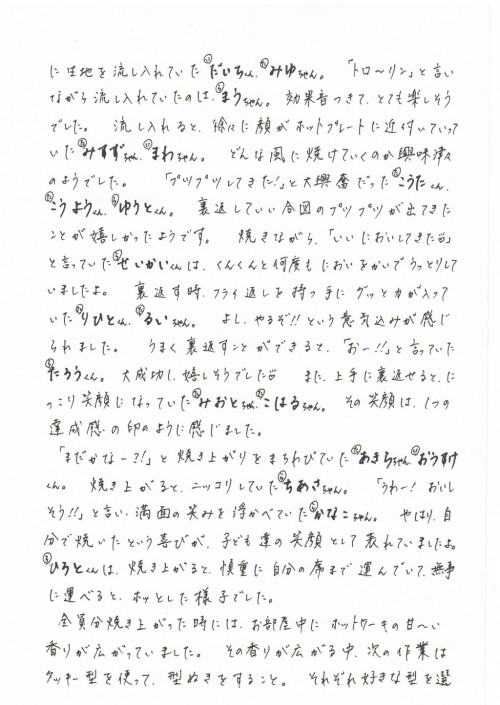 に生地を流し入れていただいちゃん、みゆちゃん。「トロ〜リン」と言い
ながら流し入れていたのは、まうちゃん。効果音つきで、とても楽しそう
でした。流し入れると、徐々に顔がホットプレートに近付いていって
いたみすずちゃん、まわちゃん。どんな風に焼けていくのか興味津々
のようでした。「プツプツしてきた!」と大興奮だったこうたくん、
こうようくん、ゆうとくん。裏返していい合図のプツプツが出てきた
ことが嬉しかったようです。焼きながら、「いいにおいしてきた」
と言っていたせいかいくんは、くんくんと何度もにおいをかいでうっとりして
いましたよ。裏返す時、フライ返しを持つ手にグッと力が入って
いたりひとくん、るいちゃん。よし、やるぞ!!という意気込みが感じ
られました。うまく裏返すことができると、「おー!!」と言っていた
たろうくん。大成功し、嬉しそうでした。また、上手に裏返せると、に
っこり笑顔になっていたみおとちゃん、こはるちゃん。その笑顔は、1つの
達成感の印のように感じました。
「まだかなー?!」と焼き上がりをまちわびていたあきらちゃん、おうすけ
くん。焼き上がると、ニッコリしていたちあさちゃん。「うわー!おいし
そう!!」と言い、満面の笑みを浮かべていたかなこちゃん。やはり、自
分で焼いたという喜びが、子ども達の笑顔として表れていましたよ。
ひろとくんは、焼き上がると、慎重に自分の席まで運んでいて、無事
に運べると、ホッとした様子でした。
全員分焼き上がった時には、お部屋中にホットケーキの甘〜い
香りが広がっていました。その香りが広がる中、次の作業は
クッキー型を使って、型ぬきをすること。それぞれ好きな型を選